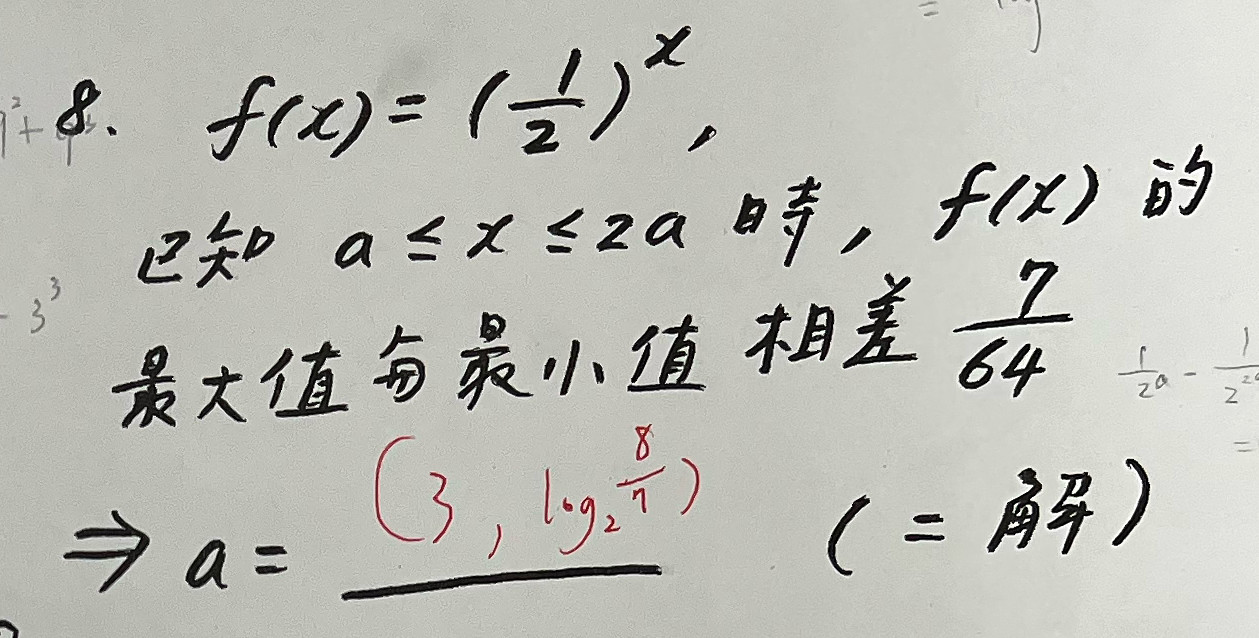 8. f(x) = (1/2)^x,
已知 a ≤ x ≤ 2a 時, f(x) 的
最大值每最小值 相差 7/64
(3, log₂ 8/7)
⇒ a = ______ (二解)
- 3³
1/2^a - 1/2^2a
=
= log